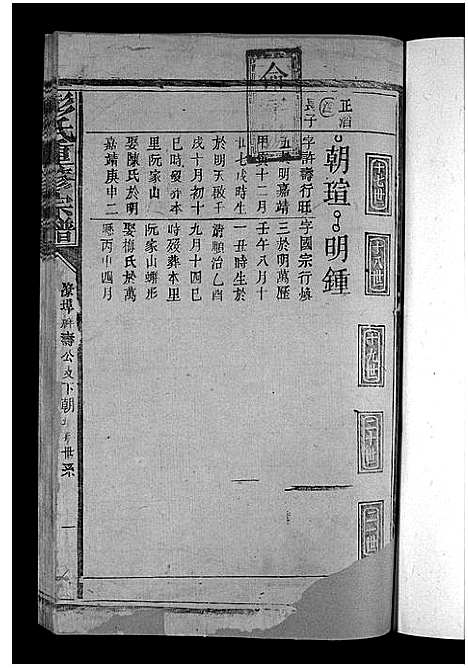 十七世
十八世
十九世
二十世
二一世
正酒
長子
朝瑄
明鍾
字許壽行旺
五 明嘉靖
甲寅十二月
廿七戌時生
於明天啟壬
戌十月初十
巳時歿葬本
里阮家山
娶陳氏於明
嘉靖庚申二
字國宗行慎
三於明萬歷
壬午八月十
一丑時生於
清順治乙酉
九月十四巳
時歿葬本里
阮家山蝌形
娶梅氏於萬
歷丙申四月
彭氏重修宗譜
壽公支下朝 世系
一